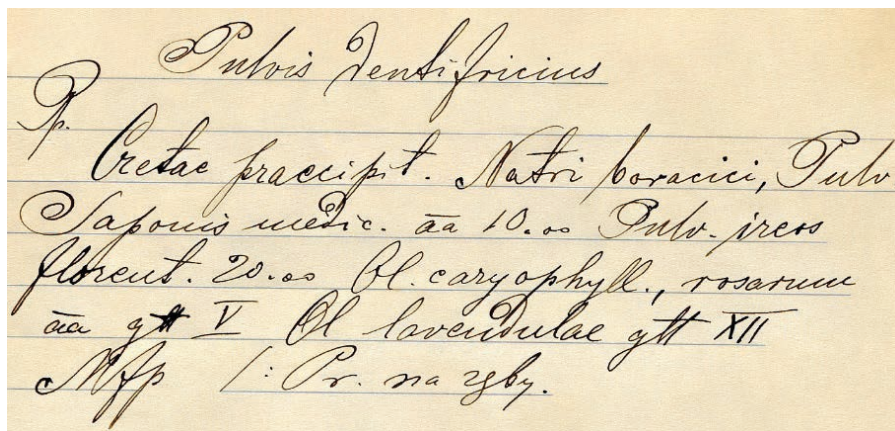 Pulvis dentifricius
Rp.
Cretae praecipit. Natri boracici, Pulv
Saponis medic. āā 10.00 Pulv. ireos
florent. 20.00 Ol. caryophyll., rosarum
āā gtt V Ol lavendulae gtt XII
Mfp /: Pr. na zęby.